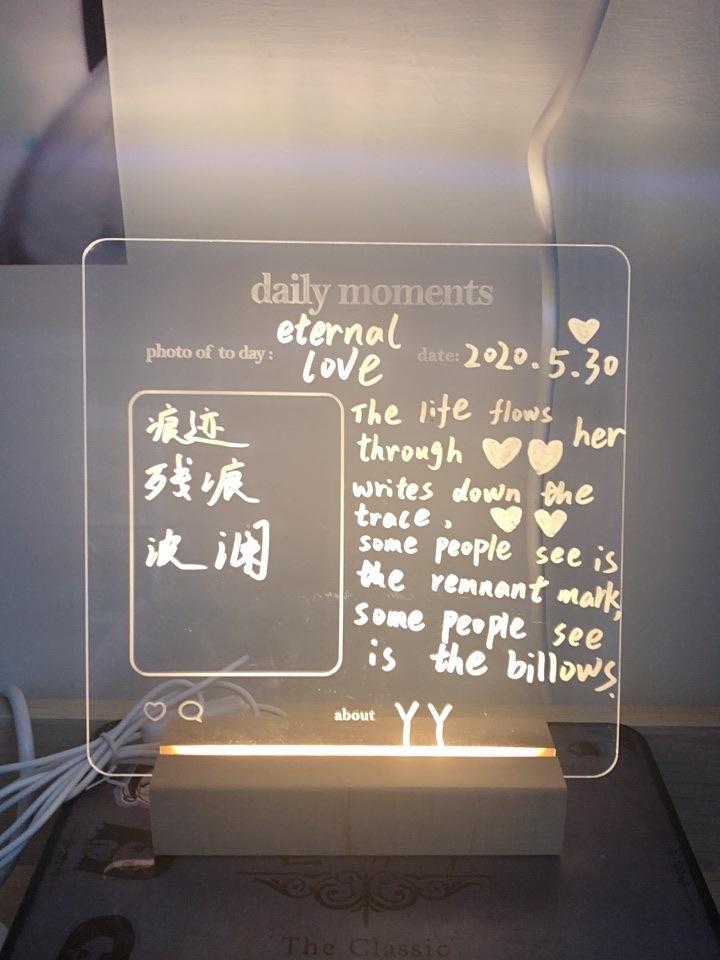 daily moments
photo of to day: eternal love
date: 2020.5.30
痕迹
残痕
波澜
The life flows
through her
writes down the
trace,
some people see is
the remnant mark,
some people see
is the billows.
about YY
The Classic